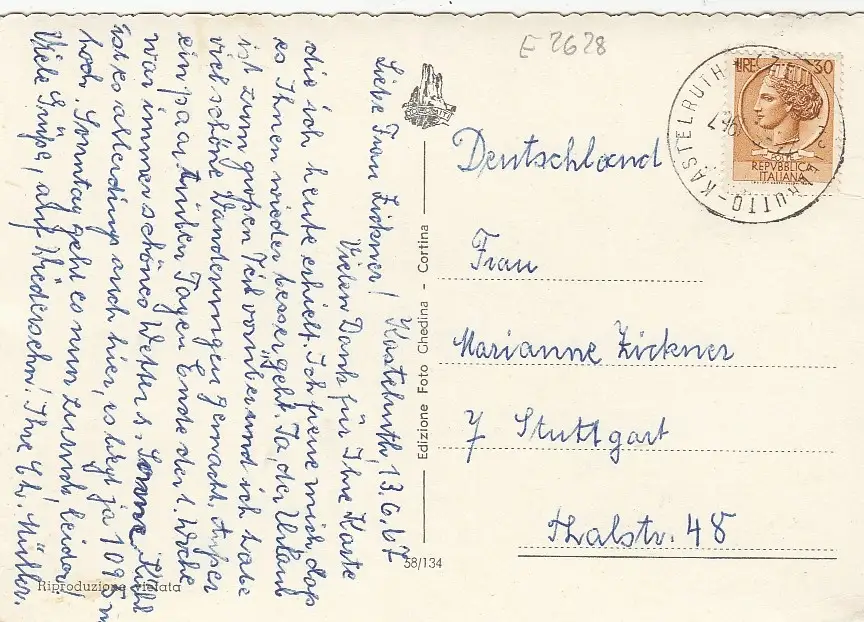 Liebe Frau Zickner! Kastelruth, 13.6.67
Vielen Dank für Ihre Karte
die ich heute erhielt. Ich freue mich, daß
es Ihnen wieder besser geht. Ja, der Urlaub
ist zum großen Teil vorüber und ich habe
viel schöne Wanderungen gemacht. Außer
ein paar trüben Tagen Ende der 1. Woche
war immer schönes Wetter u. Sonne. Kühl
ist es allerdings auch hier, es liegt ja 1095 m
hoch. Sonntag geht es nun zurück, leider!
Viele Grüße, auf Wiedersehn! Ihre
Riproduzione vietata
Edizione Foto Ghedina - Cortina
58/134
E 2628
LIRE 30
POSTE
REPVBBLICA
ITALIANA
KASTELRUTH
Deutschland
Frau
Marianne Zickner
7 Stuttgart
Thalstr. 48